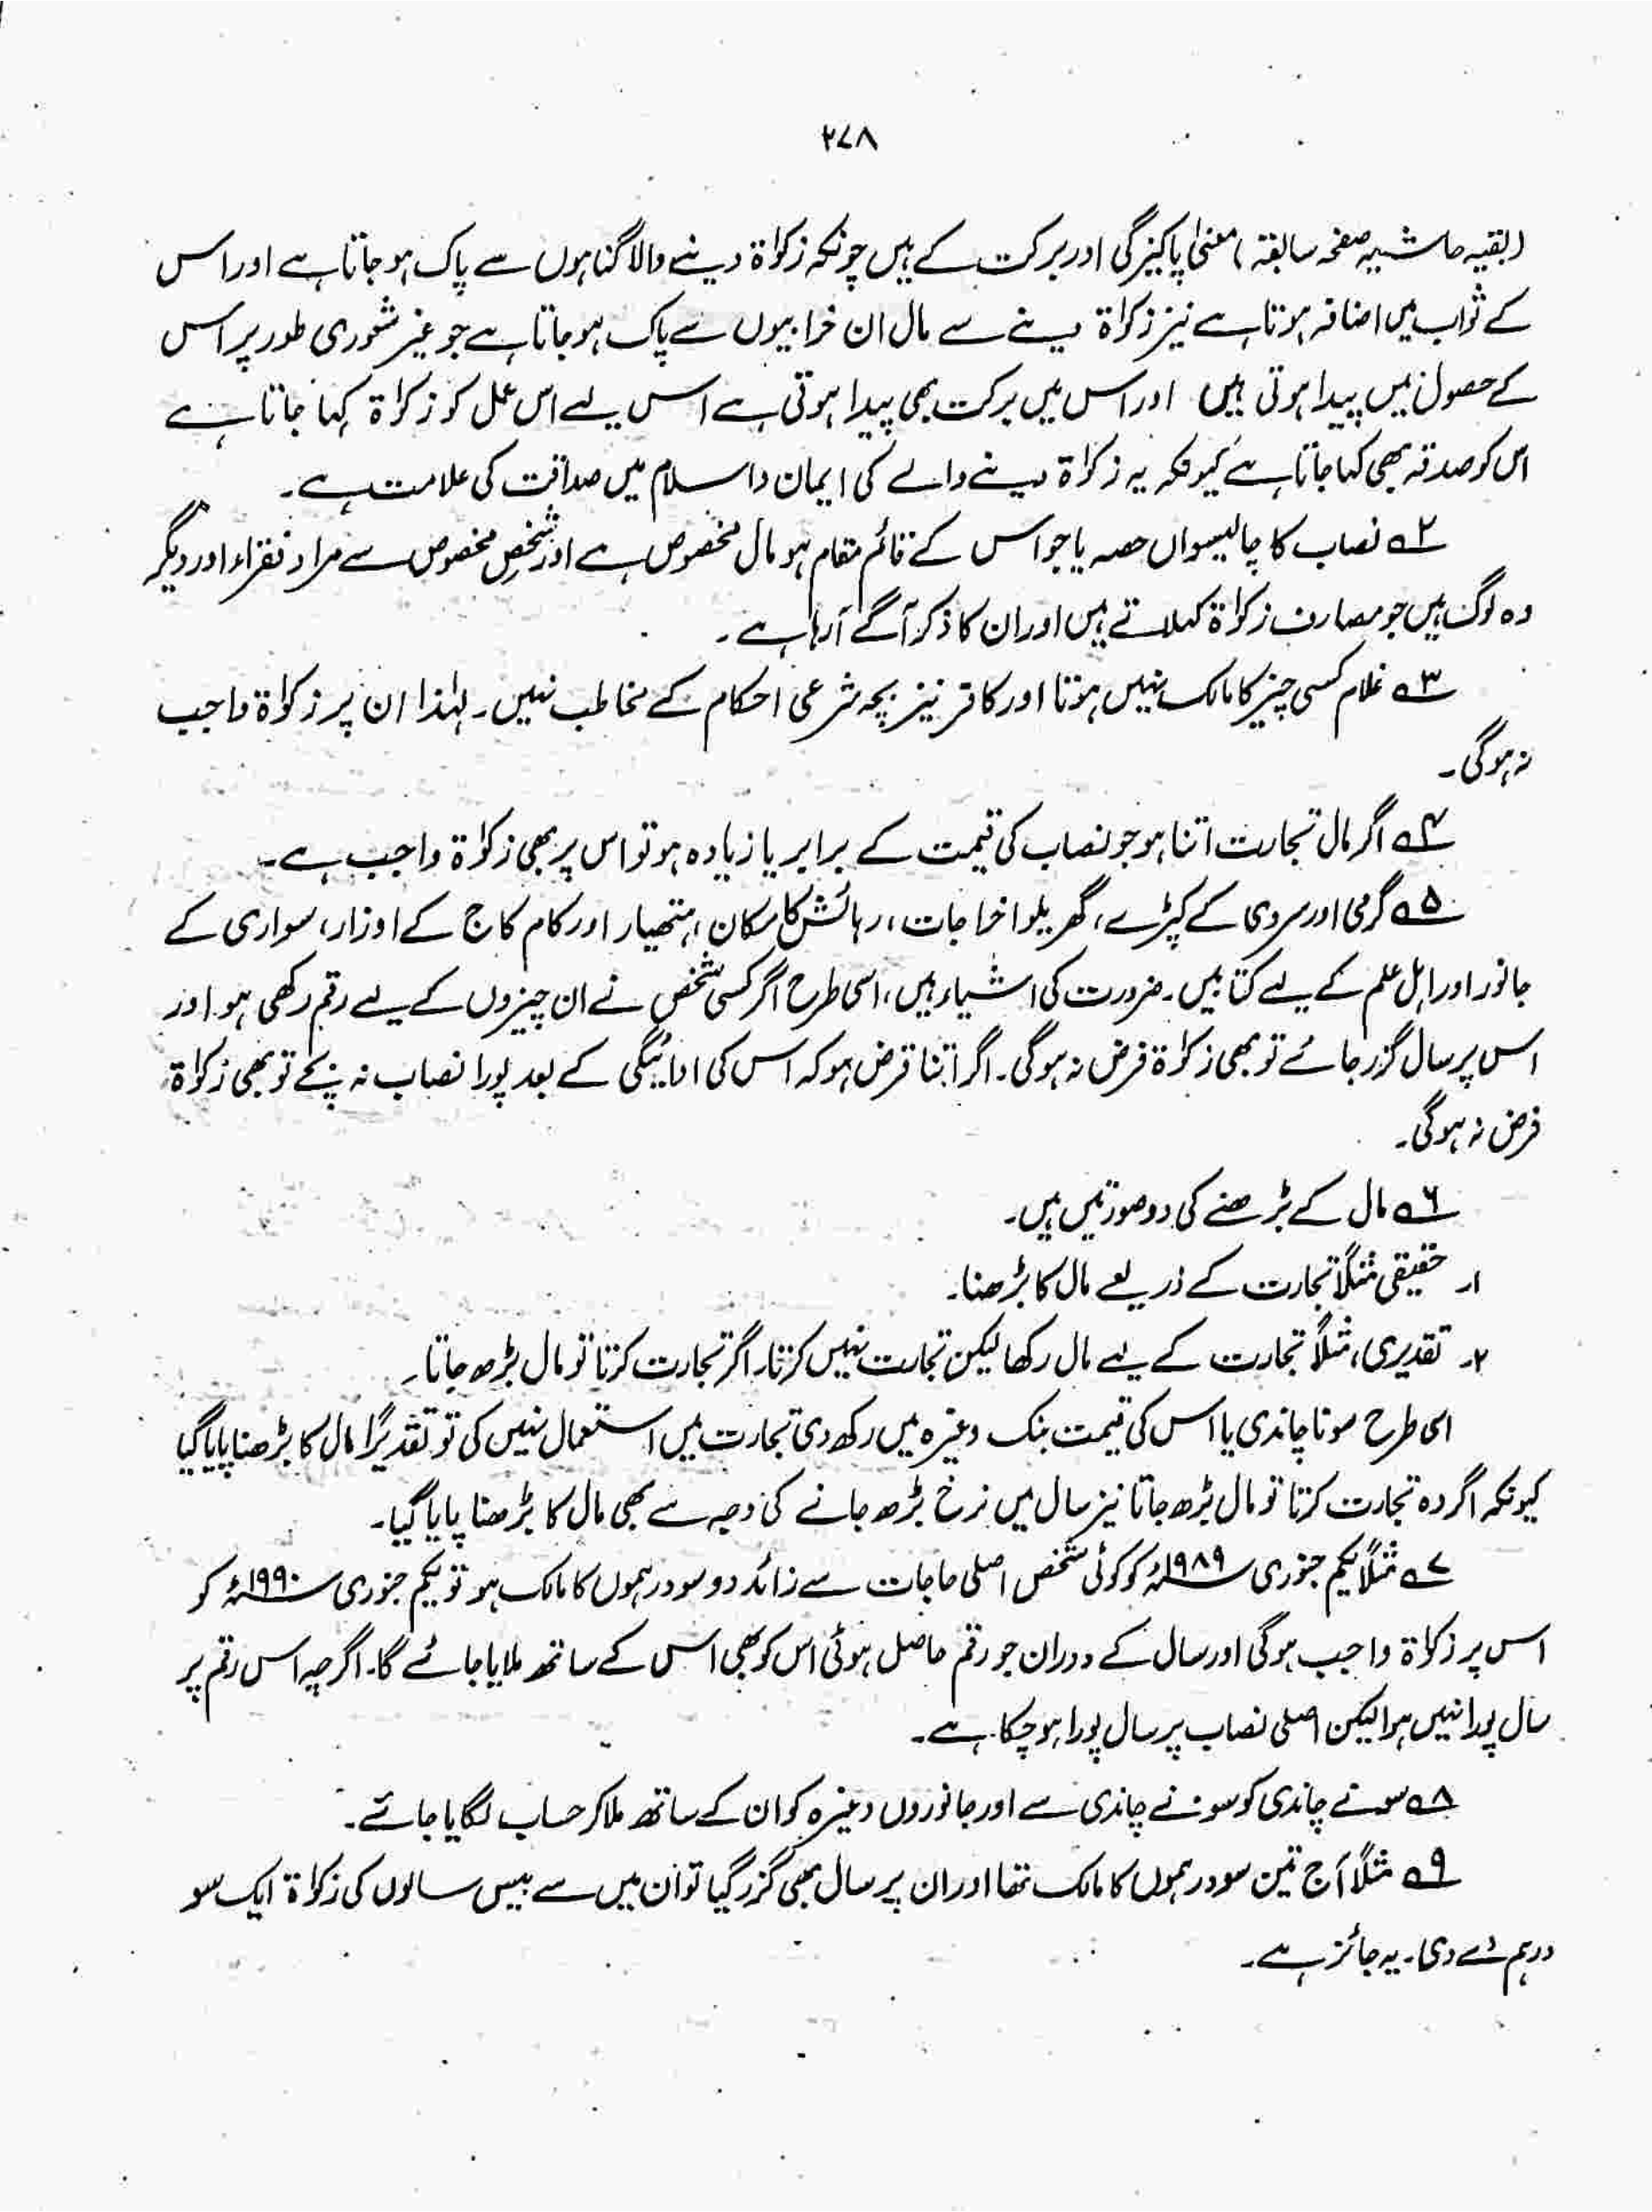 ۲۷۸
(بقیہ حاشیہ صفحہ سابقہ) معنیٰ پاکیزگی اور برکت کے ہیں چونکہ زکوٰۃ دینے والا گناہوں سے پاک ہو جاتا ہے اور اس
کے ثواب میں اضافہ ہوتا ہے نیز زکوٰۃ دینے سے مال ان خرابیوں سے پاک ہو جاتا ہے جو غیر شعوری طور پر اس
کے حصول میں پیدا ہوتی ہیں اور اس میں برکت بھی پیدا ہوتی ہے اس لیے اس عمل کو زکوٰۃ کہا جاتا ہے
اس کو صدقہ بھی کہا جاتا ہے کیونکہ یہ زکوٰۃ دینے والے کی ایمان و اسلام میں صداقت کی علامت ہے۔
۲؎ نصاب کا چالیسواں حصہ یا جو اس کے قائم مقام ہو مال مخصوص ہے اور شخصِ مخصوص سے مراد فقراء اور دیگر
وہ لوگ ہیں جو مصارف زکوٰۃ کہلاتے ہیں اور ان کا ذکر آگے آرہا ہے۔
۳؎ غلام کسی چیز کا مالک نہیں ہوتا اور کافر نیز بچہ شرعی احکام کے مخاطب نہیں۔ لہٰذا ان پر زکوٰۃ واجب
نہ ہوگی۔
۴؎ اگر مال تجارت اتنا ہو جو نصاب کی قیمت کے برابر یا زیادہ ہو تو اس پر بھی زکوٰۃ واجب ہے۔
۵؎ گرمی اور سردی کے کپڑے، گھریلو اخراجات، رہائش کا مکان، ہتھیار اور کام کاج کے اوزار، سواری کے
جانور اور اہل علم کے لیے کتابیں۔ ضرورت کی اشیاء ہیں، اسی طرح اگر کسی شخص نے ان چیزوں کے لیے رقم رکھی ہو اور
اس پر سال گزر جائے تو بھی زکوٰۃ فرض نہ ہوگی۔ اگر اتنا قرض ہو کہ اس کی ادائیگی کے بعد پورا نصاب نہ بچے تو بھی زکوٰۃ
فرض نہ ہوگی۔
۶؎ مال کے بڑھنے کی دو صورتیں ہیں۔
۱۔ حقیقی مثلاً تجارت کے ذریعے مال کا بڑھنا۔
۲۔ تقدیری، مثلاً تجارت کے لیے مال رکھا لیکن تجارت نہیں کرتا، اگر تجارت کرتا تو مال بڑھ جاتا۔
اسی طرح سونا چاندی یا اس کی قیمت بنک وغیرہ میں رکھ دی تجارت میں استعمال نہیں کی تو تقدیراً مال کا بڑھنا پایا گیا
کیونکہ اگر وہ تجارت کرتا تو مال بڑھ جاتا نیز سال میں نرخ بڑھ جانے کی وجہ سے بھی مال کا بڑھنا پایا گیا۔
۷؎ مثلاً یکم جنوری ۱۹۸۹ء کو کوئی شخص اصلی حاجات سے زائد دو سو درہموں کا مالک ہو تو یکم جنوری ۱۹۹۰ء کو
اس پر زکوٰۃ واجب ہوگی اور سال کے دوران جو رقم حاصل ہوئی اس کو بھی اس کے ساتھ ملایا جائے گا۔ اگرچہ اس رقم پر
سال پورا نہیں ہوا لیکن اصلی نصاب پر سال پورا ہو چکا ہے۔
۸؎ سونے چاندی کو سونے چاندی سے اور جانوروں وغیرہ کو ان کے ساتھ ملا کر حساب لگایا جائے۔
۹؎ مثلاً آج تین سو درہموں کا مالک تھا اور ان پر سال بھی گزر گیا تو ان میں سے بیس سالوں کی زکوٰۃ ایک سو
درہم دے دی۔ یہ جائز ہے۔